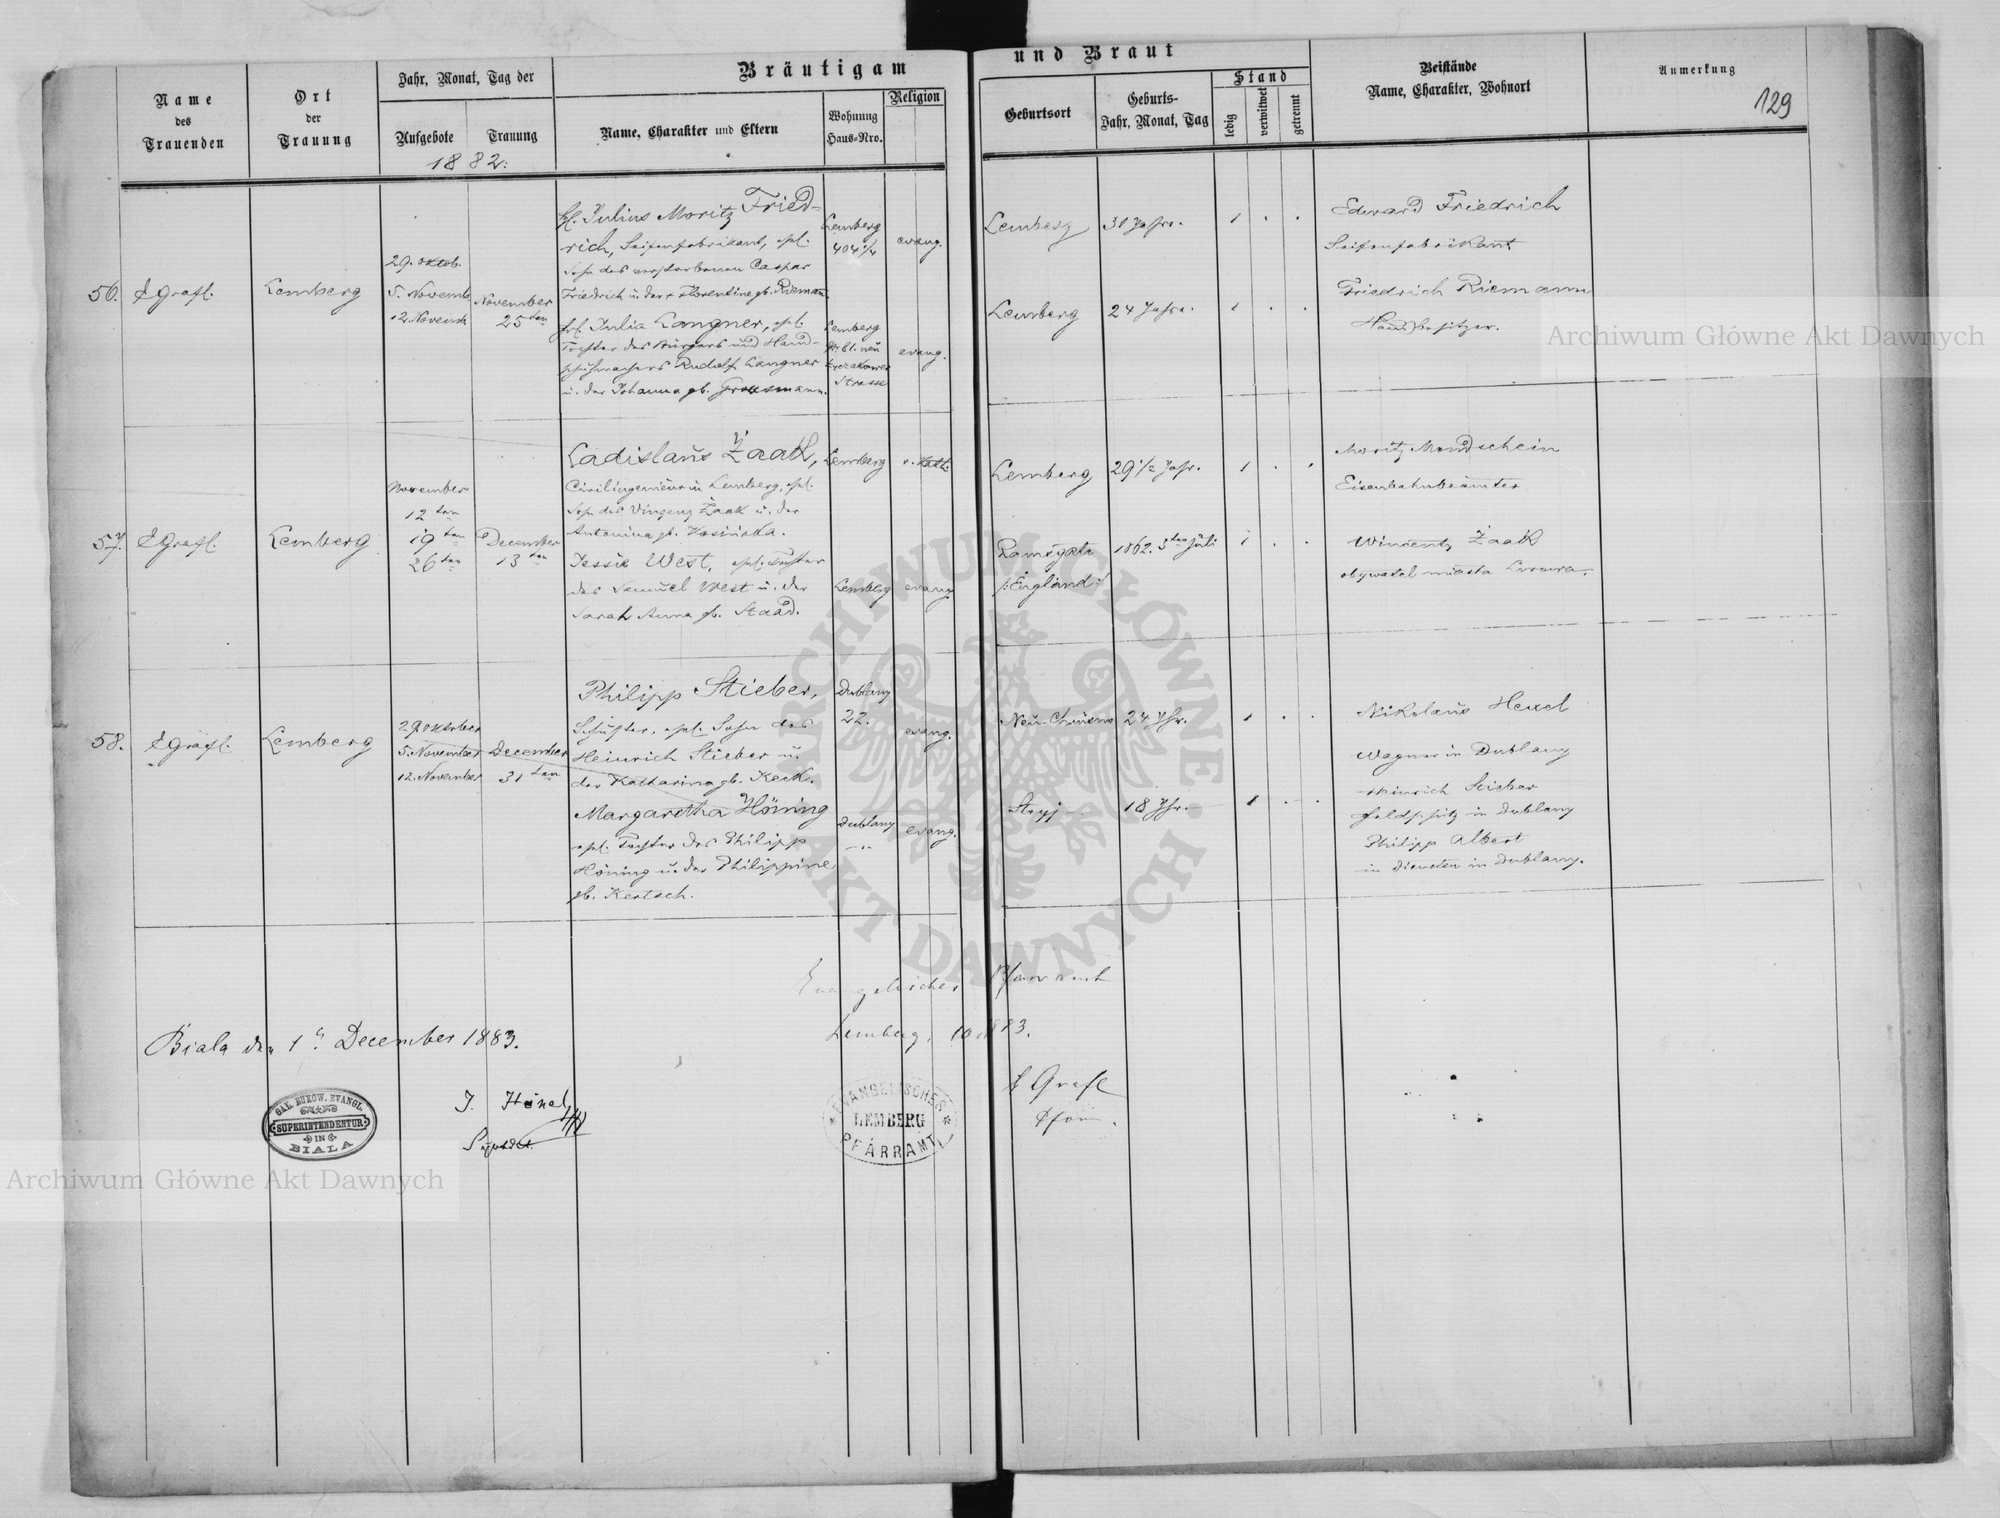 Bräutigam und Braut
129
Name des Trauenden
Ort der Trauung
Jahr, Monat, Tag der
Aufgebote
Trauung
Name, Charakter und Eltern
Wohnung Haus-Nro.
Religion
Geburtsort
Geburts- Jahr, Monat, Tag
Stand
ledig
verwitwet
getrennt
Beistände
Name, Charakter, Wohnort
Anmerkung
1882.
56.
Grafl.
Lemberg
29. Oktob.
5. Novemb.
12. Novemb.
November
25ten
Julius Moritz Fried-
rich, Seifenfabrikant, ehl.
Sohn des verstorbenen Caspar
Friedrich u. der + Florentine gb. Riemann.
Lemberg
404 1/4
evang.
Lemberg
31 Jahre.
1
Edward Friedrich
Seifenfabrikant
Friedrich Riemann
Hausbesitzer.
Julia Langner, ehl.
Tochter des Bürgers und Hand-
schuhmachers Rudolf Langner
u. der Johanna gb. Grossmann.
Lemberg
Strasse
evang.
Lemberg
24 Jahre.
1
57.
Grafl.
Lemberg
November
12ten
19ten
26ten
December
13ten
Ladislaus Żaak,
Civilingenieur in Lemberg, ehl.
Sohn des Vinzenz Żaak u. der
Antonina gb. Kosińska.
Lemberg
r. kath.
Lemberg
29 1/2 Jahr.
1
Moritz Mondschein
Eisenbahnbeamter
Wincenty Żaak
obywatel miasta Lwowa.
Jessie West, ehl. Tochter
des Samuel West u. der
Sarah Anna gb. Staad.
Lemberg
evang.
Ramsgate
/: England :/
1862. 3ten Juli
1
58.
Grafl.
Lemberg
29. Oktober
5. November
12. November
December
31ten
Philipp Stieber,
Schuster, ehl. Sohn des
Heinrich Stieber u.
der Katharina gb. Keck.
Dublany
22.
evang.
24 Jhr.
1
Nikolaus Hexel
Wagner in Dublany
Heinrich Stieber
Feldschütz in Dublany
Philipp Albert
in Diensten in Dublany.
Margaretha Höning
ehl. Tochter des Philipp
Höning u. der Philippine
gb. Kentsch.
Dublany
evang.
Stryj
18 Jhr.
1
Evangelisches Pfarramt
Lemberg,
Biala den 1. December 1883.
Grafl
Pfarr.
J. Hönel
GAL. BUKOW. EVANGL.
SUPERINTENDENTUR
IN
BIALA
EVANGELISCHES
LEMBERG
PFARRAMT
Archiwum Główne Akt Dawnych
Archiwum Główne Akt Dawnych
ARCHIWUM GŁÓWNE AKT DAWNYCH